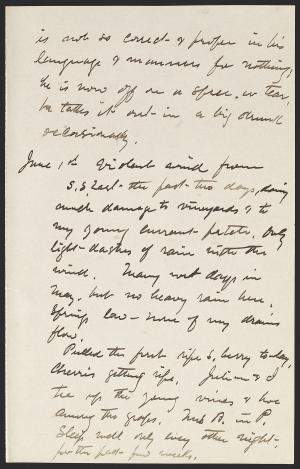 is not so correct & proper in his
language & manners for nothing;
he is now off on a spree, or tear,
he takes it out in a big drunk
occasionally.
June 1st Violent wind from
S.S. East the past two days, doing
much damage to vineyards & to
my young currant patch. Only
light dashes of rain with the
wind. Many wet days in
May, but no heavy rain here.
Springs low - none of my drains
flow.
Pulled the first ripe S. berry to-day,
Cherries getting ripe. Julian & I
tie up the young vines & hoe
among the grapes. Mrs B. in P.
Sleep well only every other night
for the past few weeks.